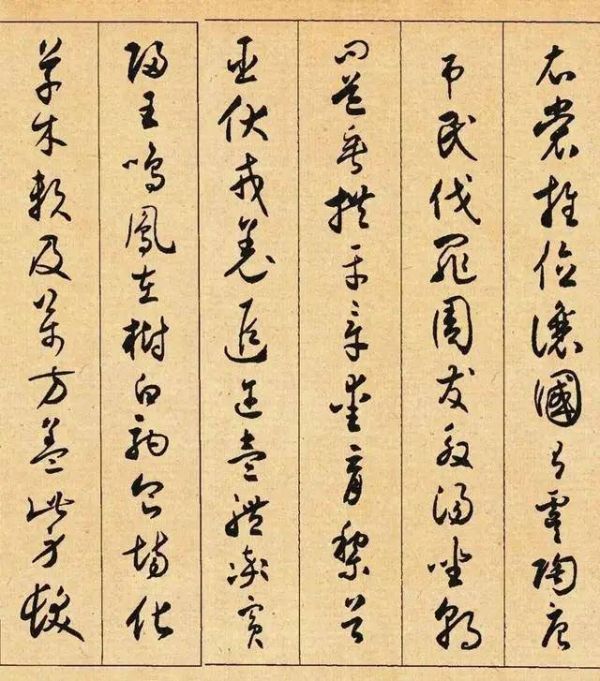 衣裳推位讓國有虞陶唐
弔民伐罪周發殷湯坐朝
問道垂拱平章愛育黎首
臣伏戎羌遐邇壹體率賓
歸王鳴鳳在樹白駒食場化
草木賴及萬方蓋此身髮